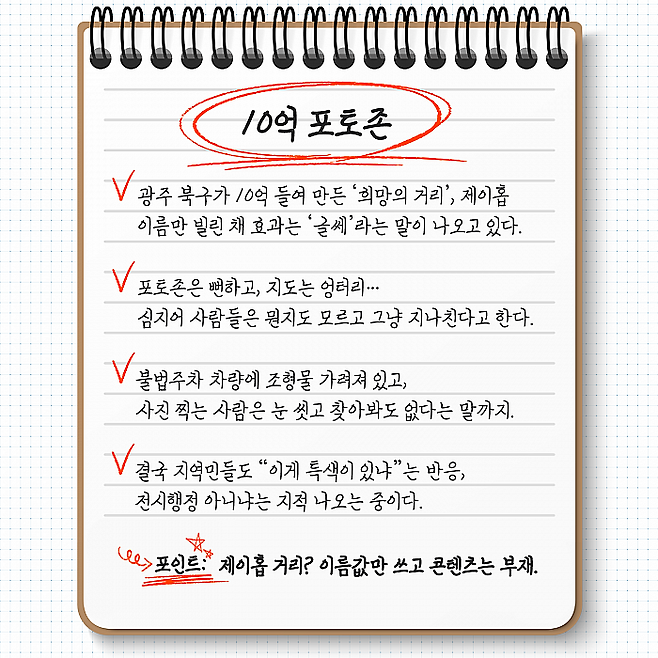 10억 포토존
광주 북구가 10억 들여 만든 ‘희망의 거리’, 제이홉
이름만 빌린 채 효과는 ‘글쎄’라는 말이 나오고 있다.
포토존은 뻔하고, 지도는 엉터리…
심지어 사람들은 뭔지도 모르고 그냥 지나친다고 한다.
불법주차 차량에 조형물 가려져 있고,
사진 찍는 사람은 눈 씻고 찾아봐도 없다는 말까지.
결국 지역민들도 “이게 특색이 있냐”는 반응,
전시행정 아니냐는 지적 나오는 중이다.
포인트: 제이홉 거리? 이름값만 쓰고 콘텐츠는 부재.